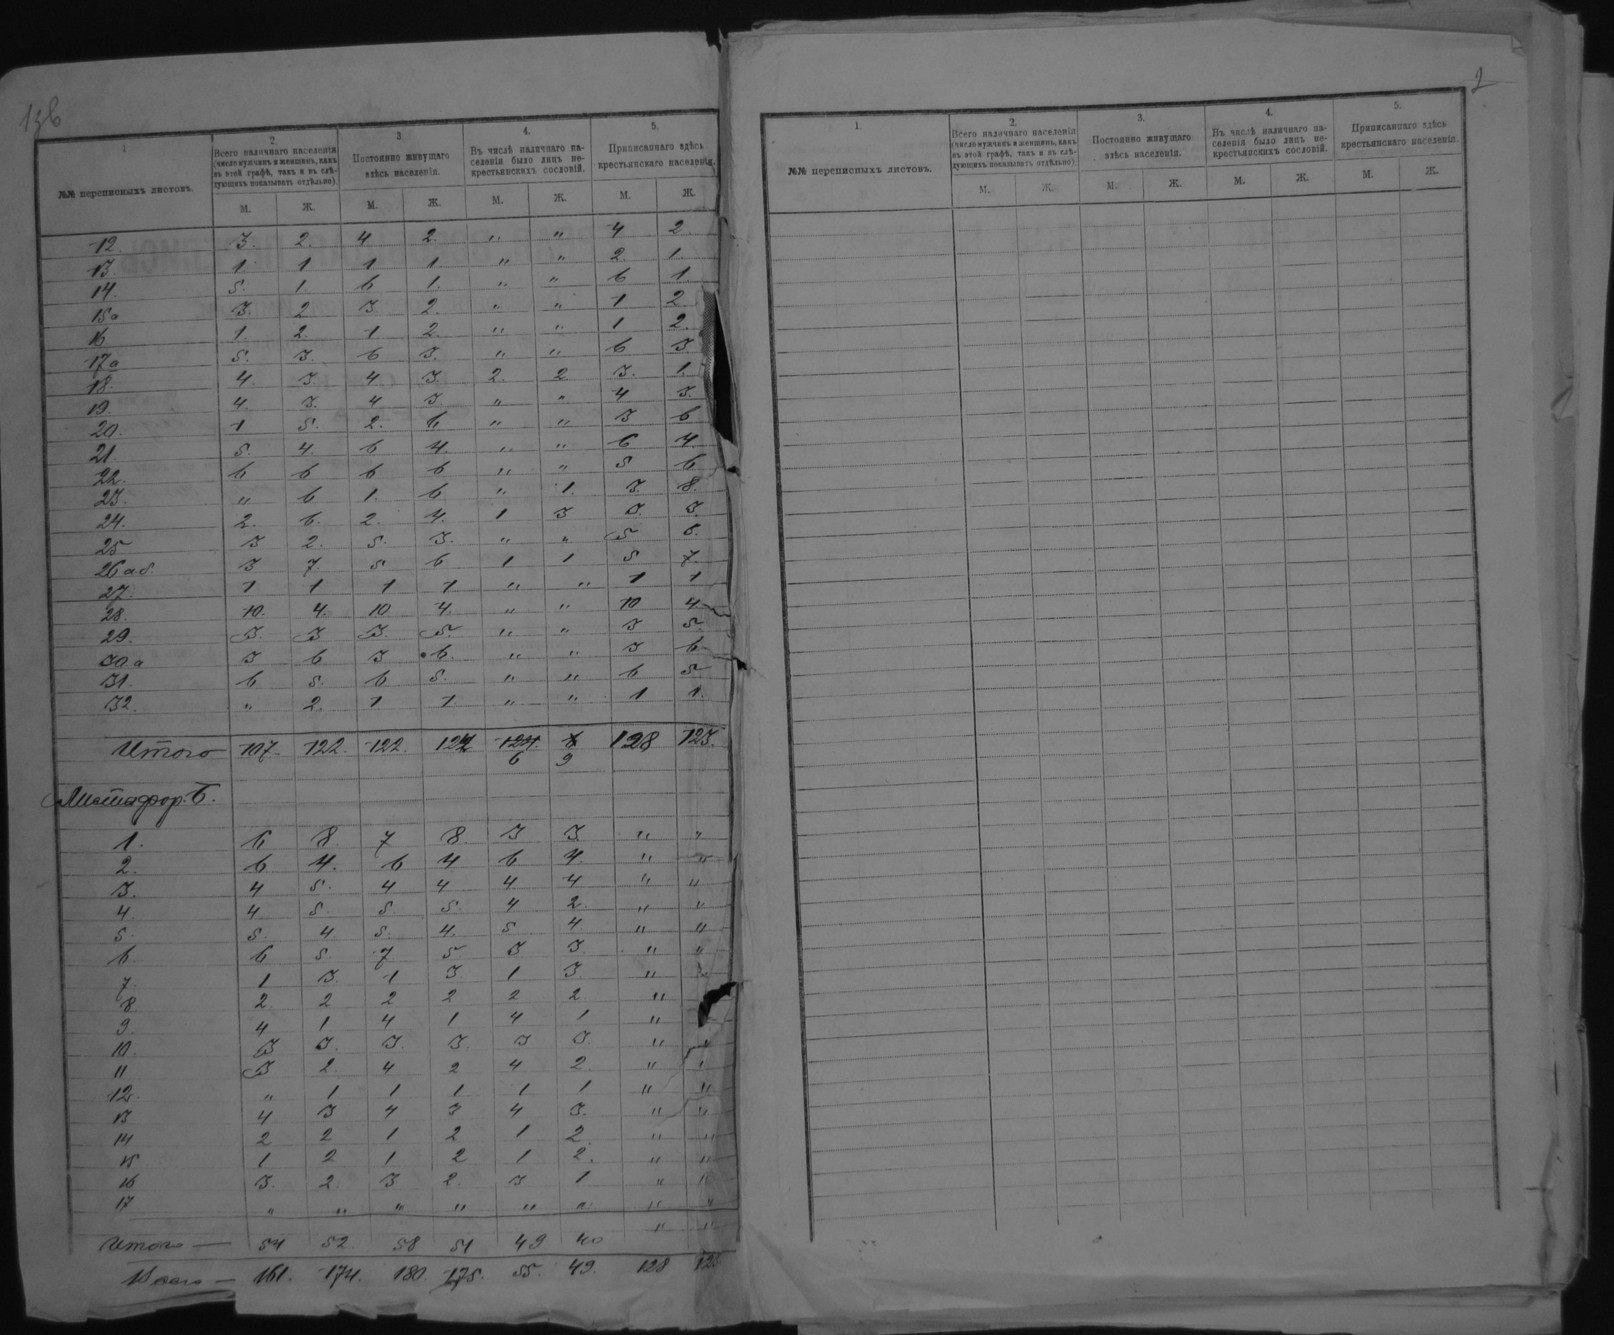 136
1
2.
3.
4.
5.
№№ переписныхъ листовъ.
Всего наличнаго населенія
(число мужчинъ и женщинъ, какъ
въ этой графѣ, такъ и въ слѣ-
дующихъ показывать отдѣльно).
Постоянно живущаго
здѣсь населенія.
Въ числѣ наличнаго на-
селенія было лицъ не-
крестьянскихъ сословій.
Приписаннаго здѣсь
крестьянскаго населенія.
М. Ж. М. Ж. М. Ж. М. Ж.
12. 3. 2. 4 2. „ „ 4 2.
13. 1. 1 1 1 „ „ 2. 1.
14. 5. 1. 6 1. „ „ 6 1.
15а 3. 2 3. 2. „ „ 1 2.
16 1. 2. 1 2. „ „ 1 2.
17а 5. 3. 6 3. „ „ 6 3
18. 4. 3. 4 3. 2. 2 3. 1.
19. 4. 3. 4 3. „ „ 4 3.
20. 1 5. 2. 6 „ „ 3 6
21. 5. 4. 6 4. „ „ 6 4.
22. 6 6 6 6 „ „ 5 6
23. „ 6 1. 6 „ 1. 3. 8.
24. 2. 6. 2. 4. 1 3 3. 3.
25 3 2. 5. 3. „ „ 5 6.
26аб 3 7. 5. 6 1 1 5 7.
27. 1 1 1 1 „ „ 1 1
28. 10. 4. 10 4. „ „ 10 4
29. 3. 3 3. 5. „ „ 3 5.
30а 3 6 3 6. „ „ 3 6
31. 6 5. 6 5. „ „ 6 5
32. „ 2. 1 1. „ „ 1 1.
Итого 107. 122. 122. 128 123.
6 9
Листа фор. Б.
1. 6 8. 7 8. 3 3. „ „
2. 6 4. 6 4 6 4. „ „
3. 4 5. 4 4 4 4 „ „
4. 4 5. 5. 5. 4 2. „ „
5. 5. 4 5. 4. 5 4. „ „
6 6 5. 7 5 3 3. „ „
7. 1 3. 1 3 1 3. „ „
8. 2 2 2 2 2 2. „
9 4 1 4 1 4 1 „
10. 3 3. 3. 3. 3 3. „ „
11 3 2. 4 2 4 2. „ „
12. „ 1 1 1 1 1 „ „
13 4 3 4 3 4 3. „ „
14 2 2 1 2 1 2. „ „
15 1 2 1 2 1 2. „ „
16 3. 2. 3 2. 3 1 „ „
17 „ „ „ „ „ „ „ „
Итого — 54 52. 58 51 49 40 „ „
Всего — 161. 174. 180. 175. 55. 49. 128 123
2
1.
2.
3.
4.
5.
№№ переписныхъ листовъ.
Всего наличнаго населенія
(число мужчинъ и женщинъ, какъ
въ этой графѣ, такъ и въ слѣ-
дующихъ показывать отдѣльно).
Постоянно живущаго
здѣсь населенія.
Въ числѣ наличнаго на-
селенія было лицъ не-
крестьянскихъ сословій.
Приписаннаго здѣсь
крестьянскаго населенія.
М. Ж. М. Ж. М. Ж. М. Ж.